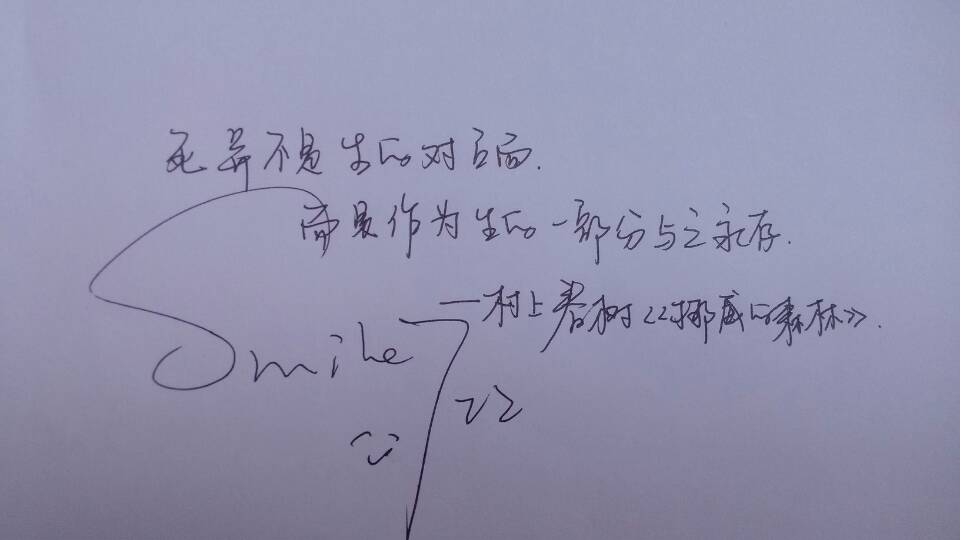 死并不是生的对面.
而是作为生的一部分与之永存.
——村上春树《挪威的森林》.
Smile
722